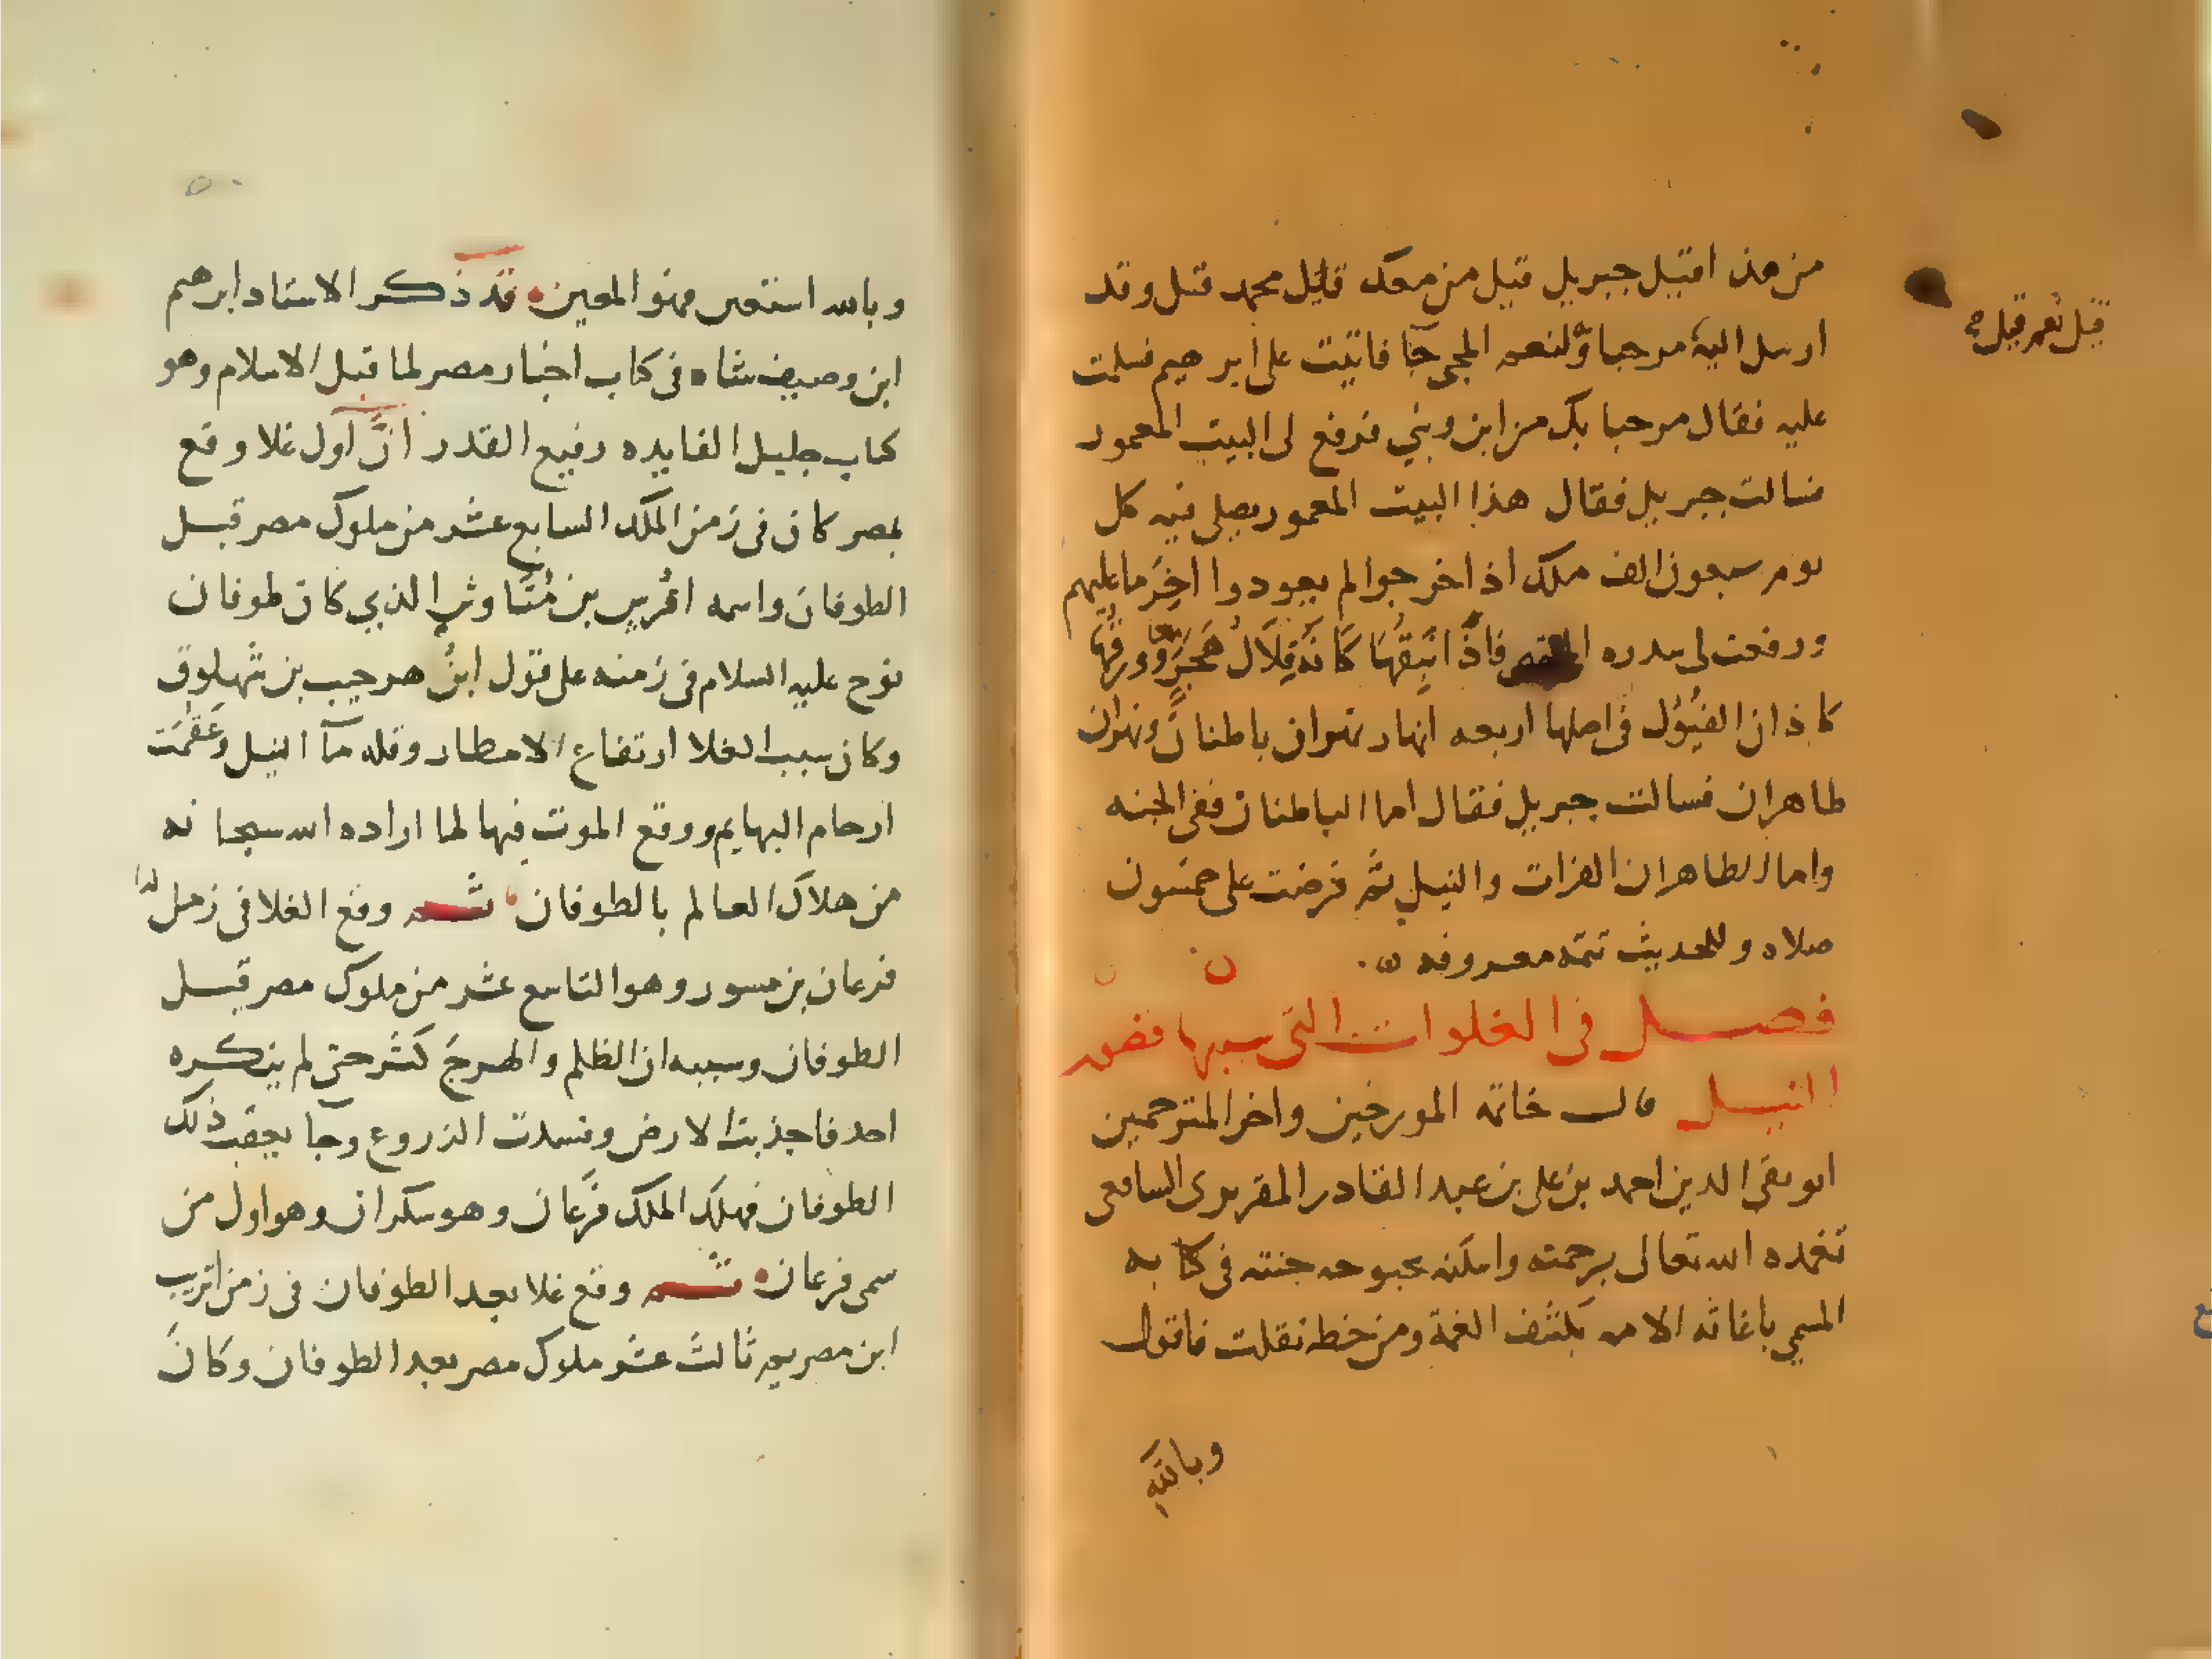 من هذا قيل جبريل قيل من معك قيل محمد قيل وقد
قيل نعم قيل
ارسل اليه مرحبا ولنعم المجي جا فاتيت على ابرهيم فسلمت
عليه فقال مرحبا بك من ابن ونبي فرفع لى البيت المعمور
فسالت جبريل فقال هذا البيت المعمور يصلي فيه كل
يوم سبعون الف ملك اذا خرجوا لم يعودوا اخر ما عليهم
ورفعت لى سدره المنتهى فاذا نبقها كانه قلال هجر وورقها
كاذان الفيول فى اصلها اربعه انهار نهران باطنان ونهران
ظاهران فسالت جبريل فقال اما الباطنان ففى الجنه
واما الظاهران الفرات والنيل ثم فرضت على خمسون
صلاه وللحديث تتمه معروفه
فصل فى الغلوات التى سببها قصور
النيل قال خاتمه المورخين واخر المترجمين
ابو تقى الدين احمد بن على بن عبد القادر المقريزى الشافعى
تغمده الله تعالى برحمته واسكنه بحبوحه جنته فى كتابه
المسمي باغاثه الامه بكشف الغمة ومن خطه نقلت فاقول
وبالله
وبالله استعين فهو المعين قد ذكر الاستاد ابرهيم
ابن وصيف شاه فى كتاب اخبار مصر لما قبل الاسلام وهو
كتاب جليل الفايده رفيع القدر ان اول غلا وقع
بمصر كان فى زمن الملك السابع عشر من ملوك مصر قبل
الطوفان واسمه افروس بن مناوش الذي كان طوفان
نوح عليه السلام فى زمنه على قول ابن هرجيب بن شهلوق
وكان سبب الغلا ارتفاع الامطار وقله مآ النيل وعقمت
ارحام البهايم ووقع الموت فيها لما اراده الله سبحانه
من هلاك العالم بالطوفان ثم وقع الغلا فى زمن
فرعان بن مسور وهو التاسع عشر من ملوك مصر قبل
الطوفان وسببه ان الظلم والهرج كثر حتى لم ينكره
احد فاجذبت الارض وفسدت الزروع وجآ بعقب ذلك
الطوفان فهلك الملك فرعان وهو سكران وهو اول من
سمى فرعان ثم وقع غلا بعد الطوفان فى زمن اتريب
ابن مصريم ثالث عشر ملوك مصر بعد الطوفان وكان